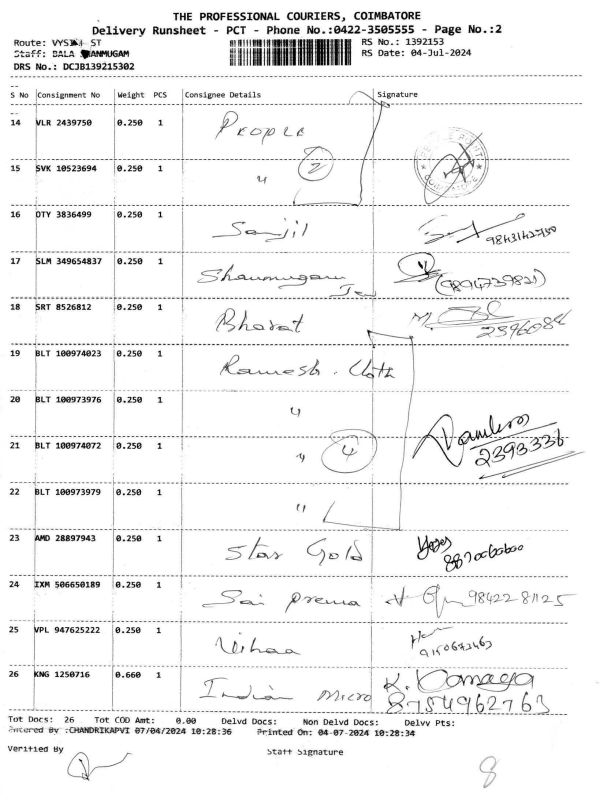 THE PROFESSIONAL COURIERS, COIMBATORE
Delivery Runsheet - PCT - Phone No.:0422-3505555 - Page No.:2
Route: ST RS No.: 1392153
Staff: BALA RS Date: 04-Jul-2024
DRS No.: DCJB139215302
S No Consignment No Weight PCS Consignee Details Signature
14 VLR 2439750 0.250 1 People
15 SVK 10523694 0.250 1 " 2
16 OTY 3836499 0.250 1 Sanjil 
17 SLM 349654837 0.250 1 Shanmugam (9894739821)
18 SRT 8526812 0.250 1 Bharat M.
19 BLT 100974023 0.250 1 Ramesh. Cloth
20 BLT 100973976 0.250 1 "
21 BLT 100974072 0.250 1 " 4 2393336
22 BLT 100973979 0.250 1 "
23 AMD 28897943 0.250 1 Star Gold
24 IXM 506650189 0.250 1 Sai prema 98422 81125
25 VPL 947625222 0.250 1 Vihaa
26 KNG 1250716 0.660 1 Indian Micro K.
8754962763
Tot Docs: 26 Tot COD Amt: 0.00 Delvd Docs: Non Delvd Docs: Delvy Pts:
Entered By :CHANDRIKAPVI 07/04/2024 10:28:36 Printed On: 04-07-2024 10:28:34
Verified By Staff Signature
8